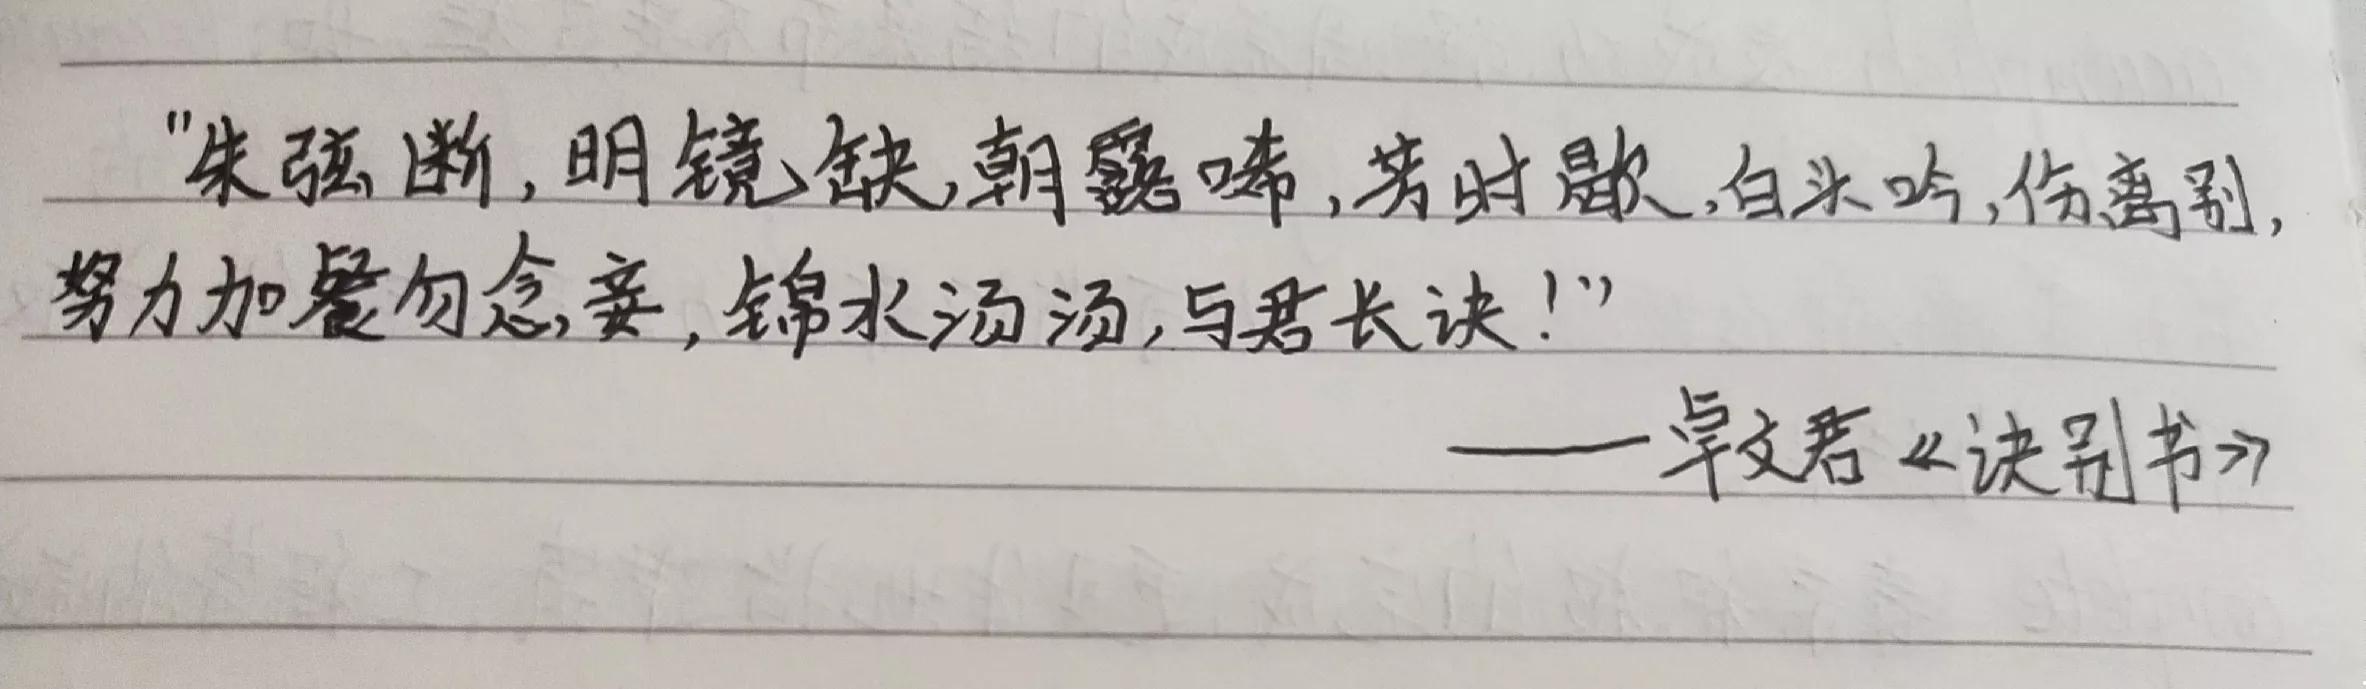 "朱弦断,明镜缺,朝露唏,芳时歇,白头吟,伤离别,
努力加餐勿念妾,锦水汤汤,与君长诀!"
——卓文君《诀别书》